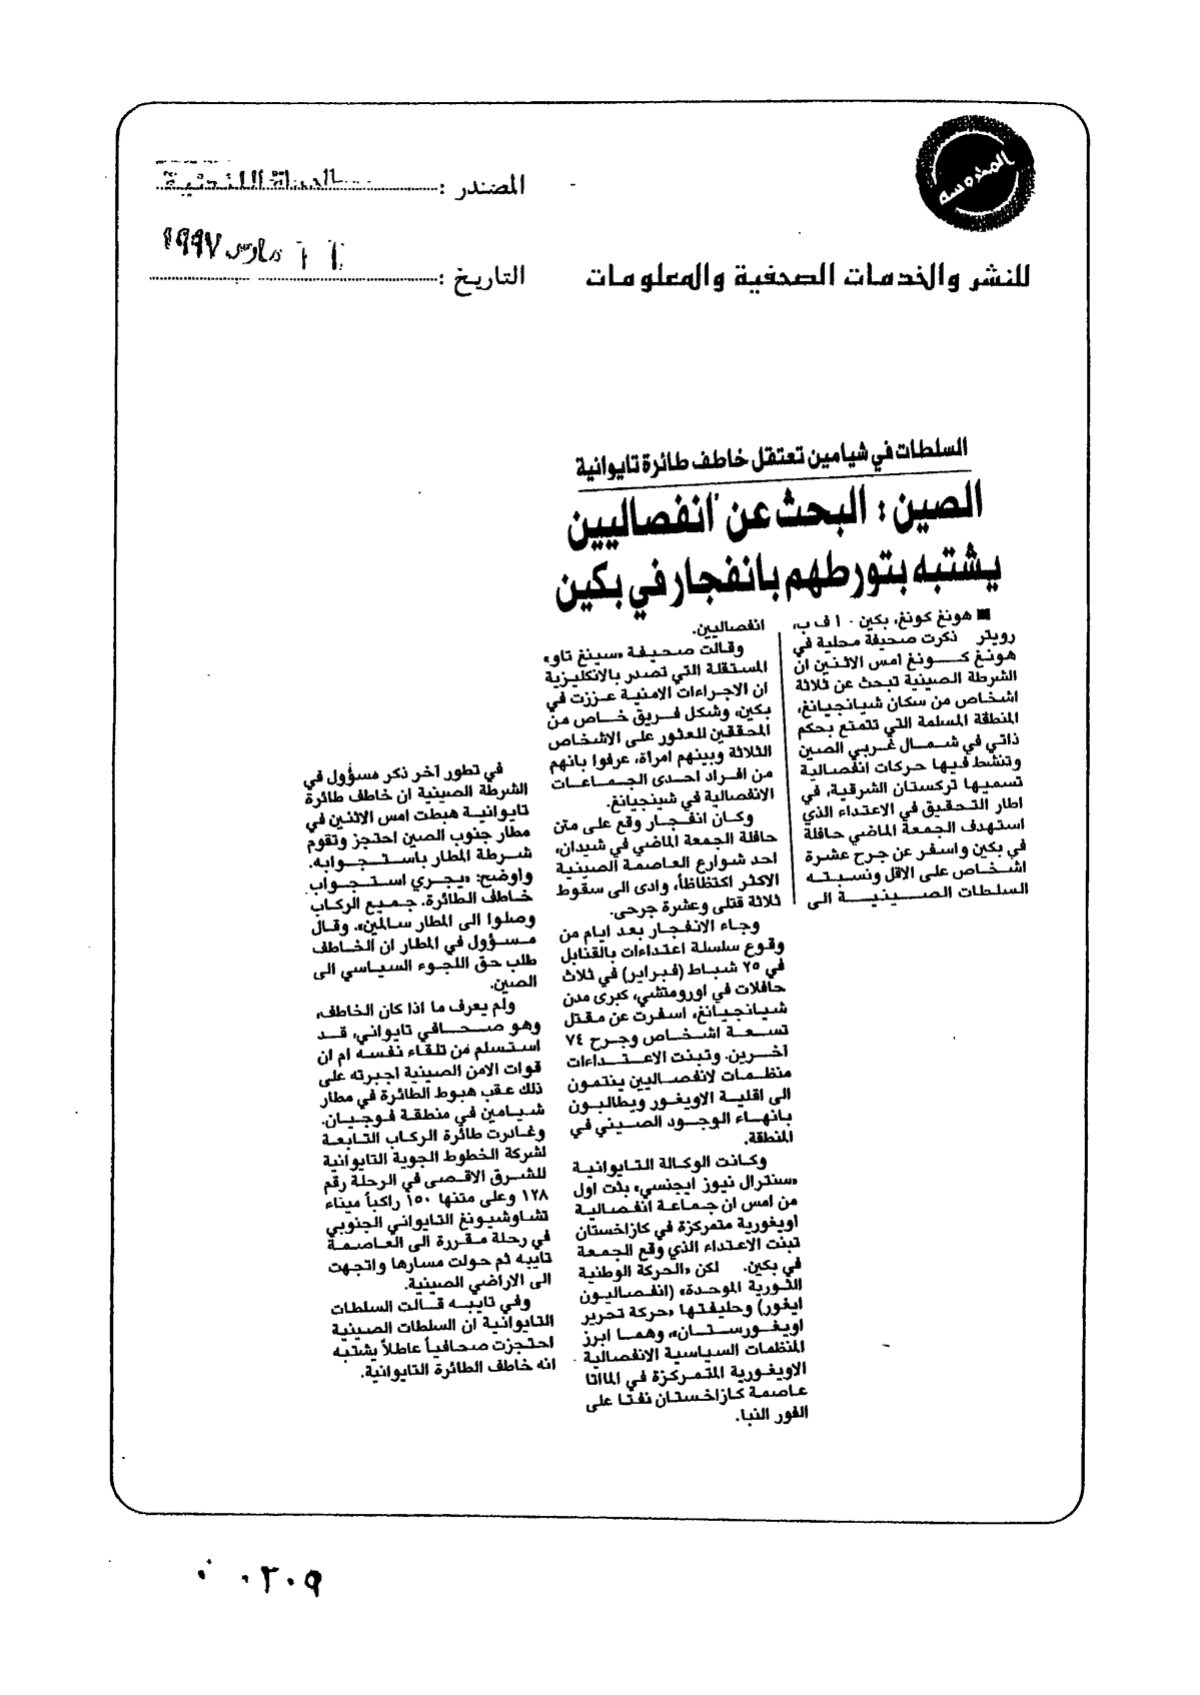 المحروسة
للنشر والخدمات الصحفية والمعلومات
المصدر :
التاريخ : ١١ مارس ١٩٩٧
السلطات في شيامين تعتقل خاطف طائرة تايوانية
الصين : البحث عن انفصاليين
يشتبه بتورطهم بانفجار في بكين
■ هونغ كونغ، بكين - ا ف ب،
رويتر - ذكرت صحيفة محلية في
هونغ كونغ امس الاثنين ان
الشرطة الصينية تبحث عن ثلاثة
اشخاص من سكان شيانجيانغ،
المنطقة المسلمة التي تتمتع بحكم
ذاتي في شمال غربي الصين
وتنشط فيها حركات انفصالية
تسميها تركستان الشرقية، في
اطار التحقيق في الاعتداء الذي
استهدف الجمعة الماضي حافلة
في بكين واسفر عن جرح عشرة
اشخاص على الاقل ونسبته
السلطات الصينية الى
انفصاليين.
وقالت صحيفة «سينغ تاو»
المستقلة التي تصدر بالانكليزية
ان الاجراءات الامنية عززت في
بكين، وشكل فريق خاص من
المحققين للعثور على الاشخاص
الثلاثة وبينهم امرأة، عرفوا بانهم
من افراد احدى الجماعات
الانفصالية في شينجيانغ.
وكان انفجار وقع على متن
حافلة الجمعة الماضي في شيدان،
احد شوارع العاصمة الصينية
الاكثر اكتظاظاً، وادى الى سقوط
ثلاثة قتلى وعشرة جرحى.
وجاء الانفجار بعد ايام من
وقوع سلسلة اعتداءات بالقنابل
في ٢٥ شباط (فبراير) في ثلاث
حافلات في اورومتشي، كبرى مدن
شيانجيانغ، اسفرت عن مقتل
تسعة اشخاص وجرح ٧٤
آخرين. وتبنت الاعتداءات
منظمات لانفصاليين ينتمون
الى اقلية الاويغور ويطالبون
بانهاء الوجود الصيني في
المنطقة.
وكانت الوكالة التايوانية
«سنترال نيوز ايجنسي» بثت اول
من امس ان جماعة انفصالية
اويغورية متمركزة في كازاخستان
تبنت الاعتداء الذي وقع الجمعة
في بكين. لكن «الحركة الوطنية
الثورية الموحدة» (انفصاليون
ايغور) وحليفتها «حركة تحرير
اويغورستان»، وهما ابرز
المنظمات السياسية الانفصالية
الاويغورية المتمركزة في الماآتا
عاصمة كازاخستان نفتا على
الفور النبا.
في تطور آخر ذكر مسؤول في
الشرطة الصينية ان خاطف طائرة
تايوانية هبطت امس الاثنين في
مطار جنوب الصين احتجز وتقوم
شرطة المطار باستجوابه.
واوضح: «يجري استجواب
خاطف الطائرة. جميع الركاب
وصلوا الى المطار سالمين». وقال
مسؤول في المطار ان الخاطف
طلب حق اللجوء السياسي الى
الصين.
ولم يعرف ما اذا كان الخاطف،
وهو صحافي تايواني، قد
استسلم من تلقاء نفسه ام ان
قوات الامن الصينية اجبرته على
ذلك عقب هبوط الطائرة في مطار
شيامين في منطقة فوجيان.
وغادرت طائرة الركاب التابعة
لشركة الخطوط الجوية التايوانية
للشرق الاقصى في الرحلة رقم
١٢٨ وعلى متنها ١٥٠ راكباً ميناء
تشاوشيونغ التايواني الجنوبي
في رحلة مقررة الى العاصمة
تايبه ثم حولت مسارها واتجهت
الى الاراضي الصينية.
وفي تايبه قالت السلطات
التايوانية ان السلطات الصينية
احتجزت صحافياً عاطلاً يشتبه
انه خاطف الطائرة التايوانية.
٠٢٠٩